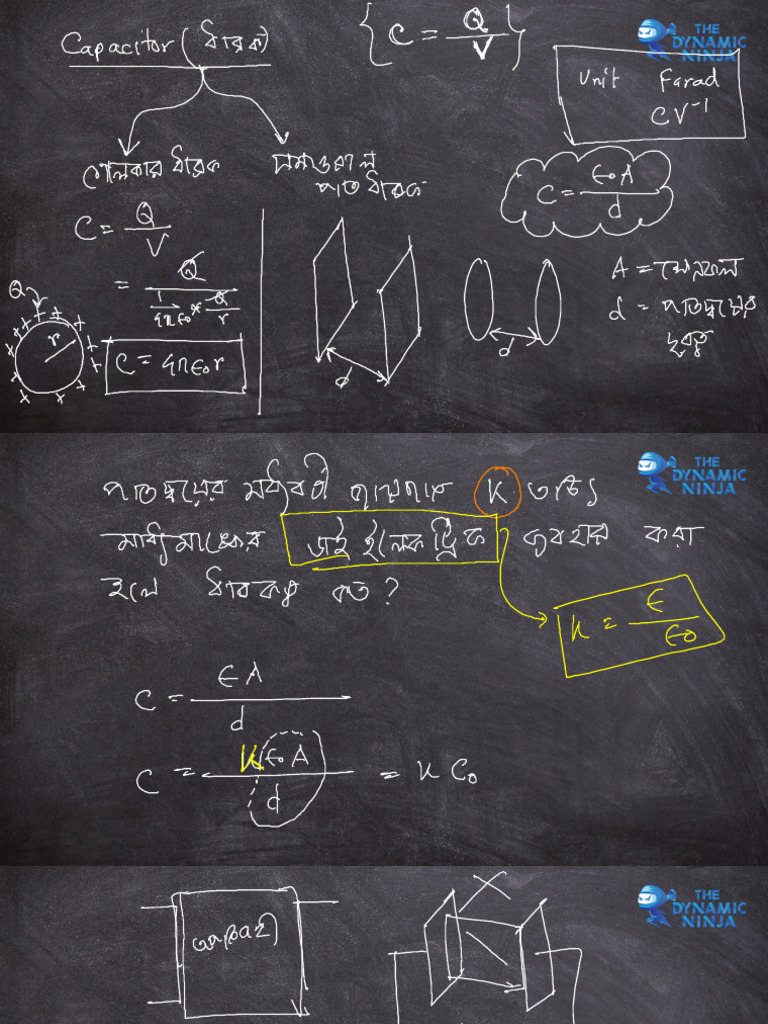 Capacitor (ধারক)
{C = Q/V}
THE DYNAMIC NINJA
Unit Farad
CV⁻¹
গোলকার ধারক
সমান্তরাল
পাত ধারক
C = ε₀A/d
C = Q/V
= Q / (1/4πε₀ × Q/r)
Q
r
C = 4πε₀r
d
d
A = ক্ষেত্রফল
d = পাতদ্বয়ের
দূরত্ব
THE DYNAMIC NINJA
পাতদ্বয়ের মধ্যবর্তী জায়গায় K তড়িৎ
মাধ্যমাঙ্কের ডাই ইলেকট্রিক ব্যবহার করা
হলে ধারকত্ব কত?
K = ε/ε₀
C = εA/d
C = Kε₀A/d = KC₀
THE DYNAMIC NINJA